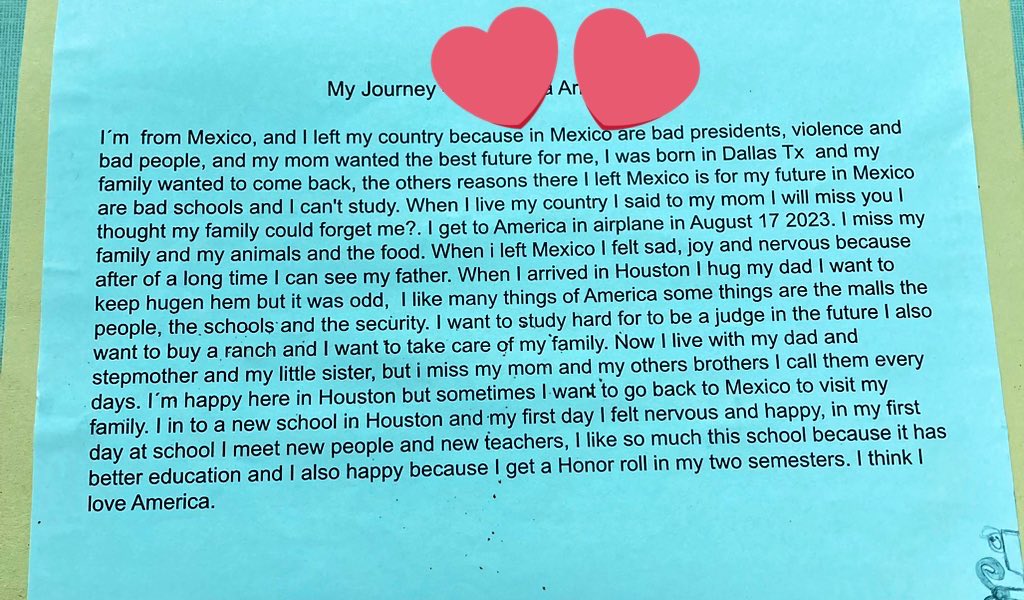 My Journey
I´m from Mexico, and I left my country because in Mexico are bad presidents, violence and
bad people, and my mom wanted the best future for me, I was born in Dallas Tx and my
family wanted to come back, the others reasons there I left Mexico is for my future in Mexico
are bad schools and I can't study. When I live my country I said to my mom I will miss you I
thought my family could forget me?. I get to America in airplane in August 17 2023. I miss my
family and my animals and the food. When i left Mexico I felt sad, joy and nervous because
after of a long time I can see my father. When I arrived in Houston I hug my dad I want to
keep hugen hem but it was odd, I like many things of America some things are the malls the
people, the schools and the security. I want to study hard for to be a judge in the future I also
want to buy a ranch and I want to take care of my family. Now I live with my dad and
stepmother and my little sister, but i miss my mom and my others brothers I call them every
days. I´m happy here in Houston but sometimes I want to go back to Mexico to visit my
family. I in to a new school in Houston and my first day I felt nervous and happy, in my first
day at school I meet new people and new teachers, I like so much this school because it has
better education and I also happy because I get a Honor roll in my two semesters. I think I
love America.